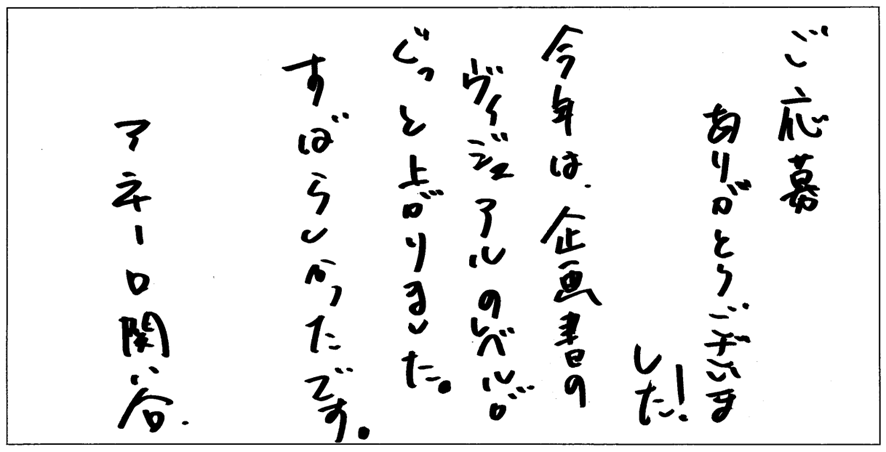 ご応募
ありがとうございま
した!
今年は、企画書の
ヴィジュアルのレベルが
ぐっと上がりました。
すばらしかったです。
アネーロ関谷.